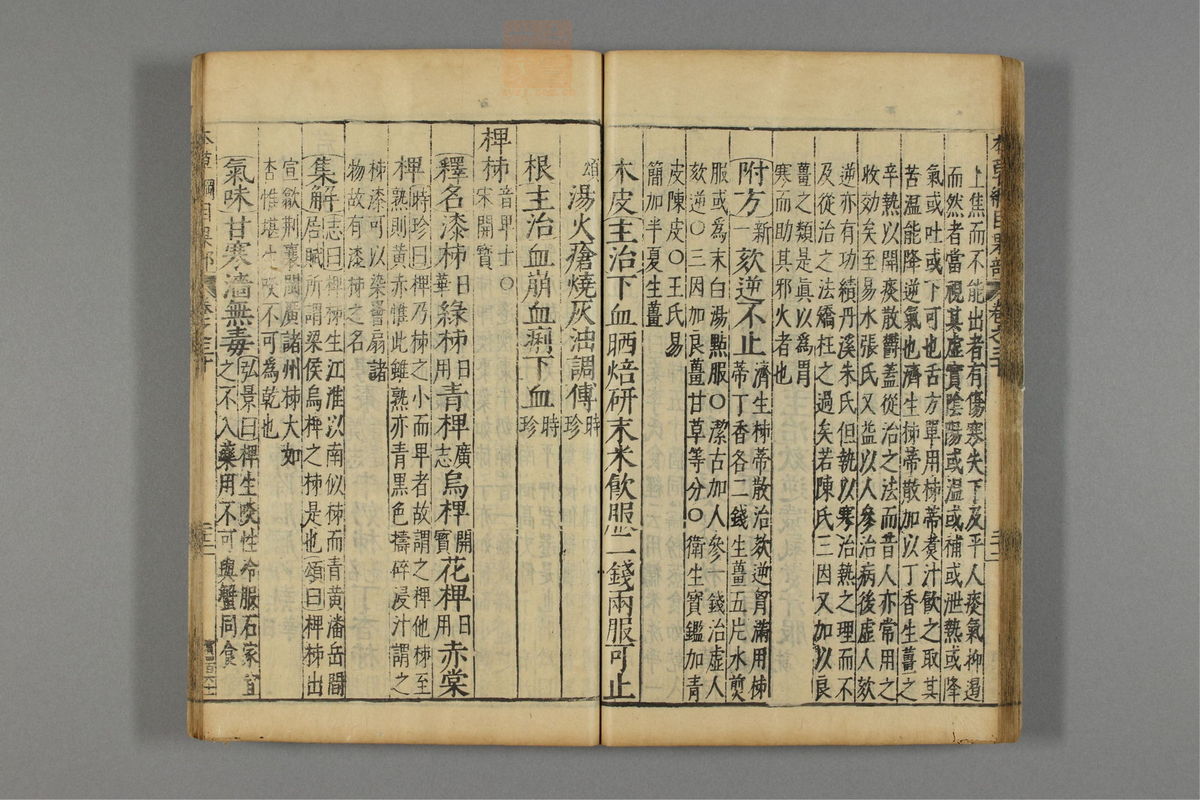 本草綱目果部 卷之三十 三十二
上焦而不能出者有傷寒失下及平人痰氣抑遏
而然者當視其虛實陰陽或溫或補或泄熱或降
氣或吐或下可也古方單用柹蒂煑汁飲之取其
苦温能降逆氣也濟生柹蒂散加以丁香生薑之
辛熱以開痰散鬱蓋從治之法而昔人亦常用之
收効矣至易水張氏又益以人參治病後虛人欬
逆亦有功績丹溪朱氏但執以寒治熱之理而不
及從治之法矯枉之過矣若陳氏三因又加以良
薑之類是眞以爲胃
寒而助其邪火者也
附方新一欬逆不止濟生柹蒂散治欬逆胷滿用柹
蒂丁香各二錢生薑五片水煎
服或爲末白湯點服○潔古加人參一錢治虛人
欬逆○三因加良薑甘草等分○衛生寶鑑加青
皮陳皮○王氏易
簡加半夏生薑
木皮主治下血晒焙研末米飲服二錢兩服可止
頌湯火瘡燒灰油調傅時珍
根主治血崩血痢下血時珍
椑柹音卑士○宋開寶
釋名漆柹日華緑柹日用青椑廣志烏椑開寶花椑日用赤棠
椑時珍曰椑乃柹之小而卑者故謂之椑他柹至
熟則黃赤惟此雖熟亦青黑色擣碎浸汁謂之
柹漆可以染罾扇諸
物故有漆柹之名
集解志曰椑柹生江淮以南似柹而青黃潘岳閒
居賦所謂梁侯烏椑之柹是也頌曰椑柹出
宣歙荆襄閩廣諸州柹大如
杏惟堪生啖不可為乾也
氣味甘寒濇無毒弘景曰椑生啖性冷服石家宜
之不入藥用不可與蟹同食